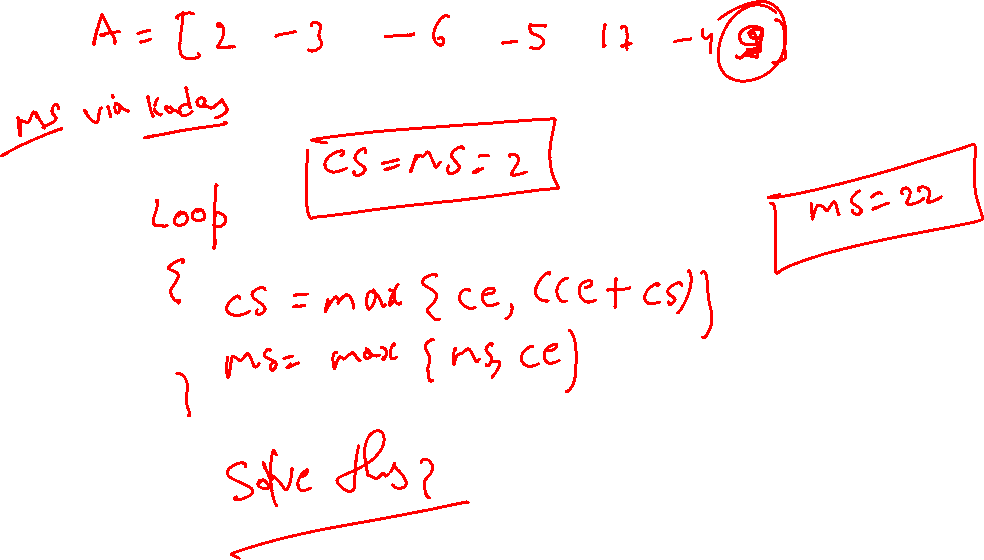 A = [ 2 -3 -6 -5 17 -4 9
MS via Kadas
CS = MS = 2
MS = 22
Loop
{
CS = max { ce, (ce + cs) }
MS = max { MS, ce }
}
Solve this?